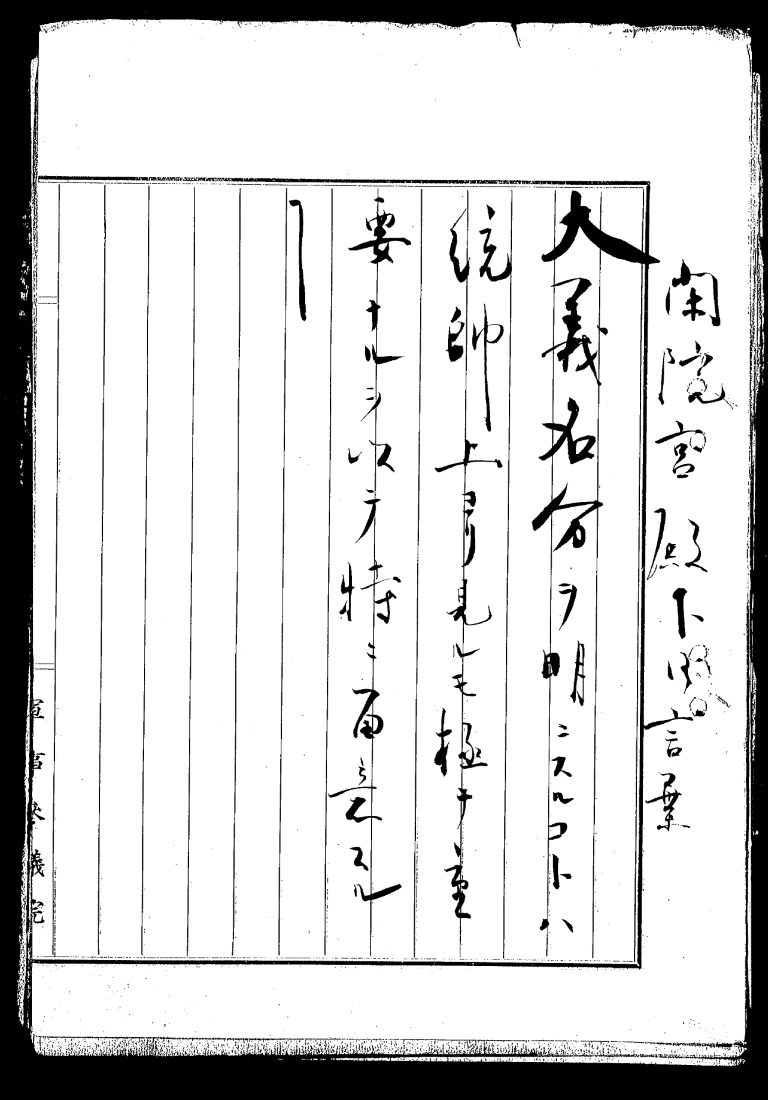 閑院宮殿下御言葉
大義名分ヲ明ニスルコトハ
統帥上ヨリ見ルモ極テ重
要ナルヲ以テ特ニ留意スル
軍事参議院